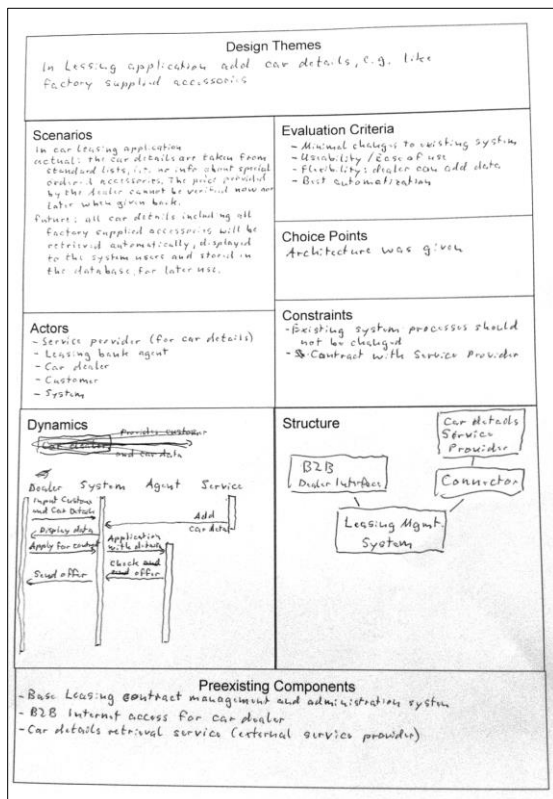 Design Themes
In Leasing application add car details, e.g. like
factory supplied accessories
Scenarios
In car leasing application
actual: the car details are taken from
standard lists, i.e. no info about special
ordered accessories. The price provided
by the dealer cannot be verified now nor
later when given back.
future: all car details including all
factory supplied accessories will be
retrieved automatically, displayed
to the system users and stored in
in the database for later use.
Evaluation Criteria
- Minimal changes to existing system
- Useability / Ease of use
- Flexibility: dealer can add data
- Best automatization
Choice Points
Architecture was given
Actors
- Service provider (for car details)
- Leasing bank agent
- Car dealer
- Customer
- System
Constraints
- Existing system processes should
not be changed
- Contract with Service Provider
Dynamics
Car dealer
Provides customer
and car data
Dealer System Agent Service
Input Custom
and Car Details
Add
Car data
Display data
Apply for contract
Application
with details
Check and
send offer
Send offer
Structure
Car details
Service
Provider
B2B
Dealer Interface
Connector
Leasing Mgmt.
System
Preexisting Components
- Base Leasing contract management and administration system
- B2B Internet access for car dealer
- Car details retrieval service (external service provider)